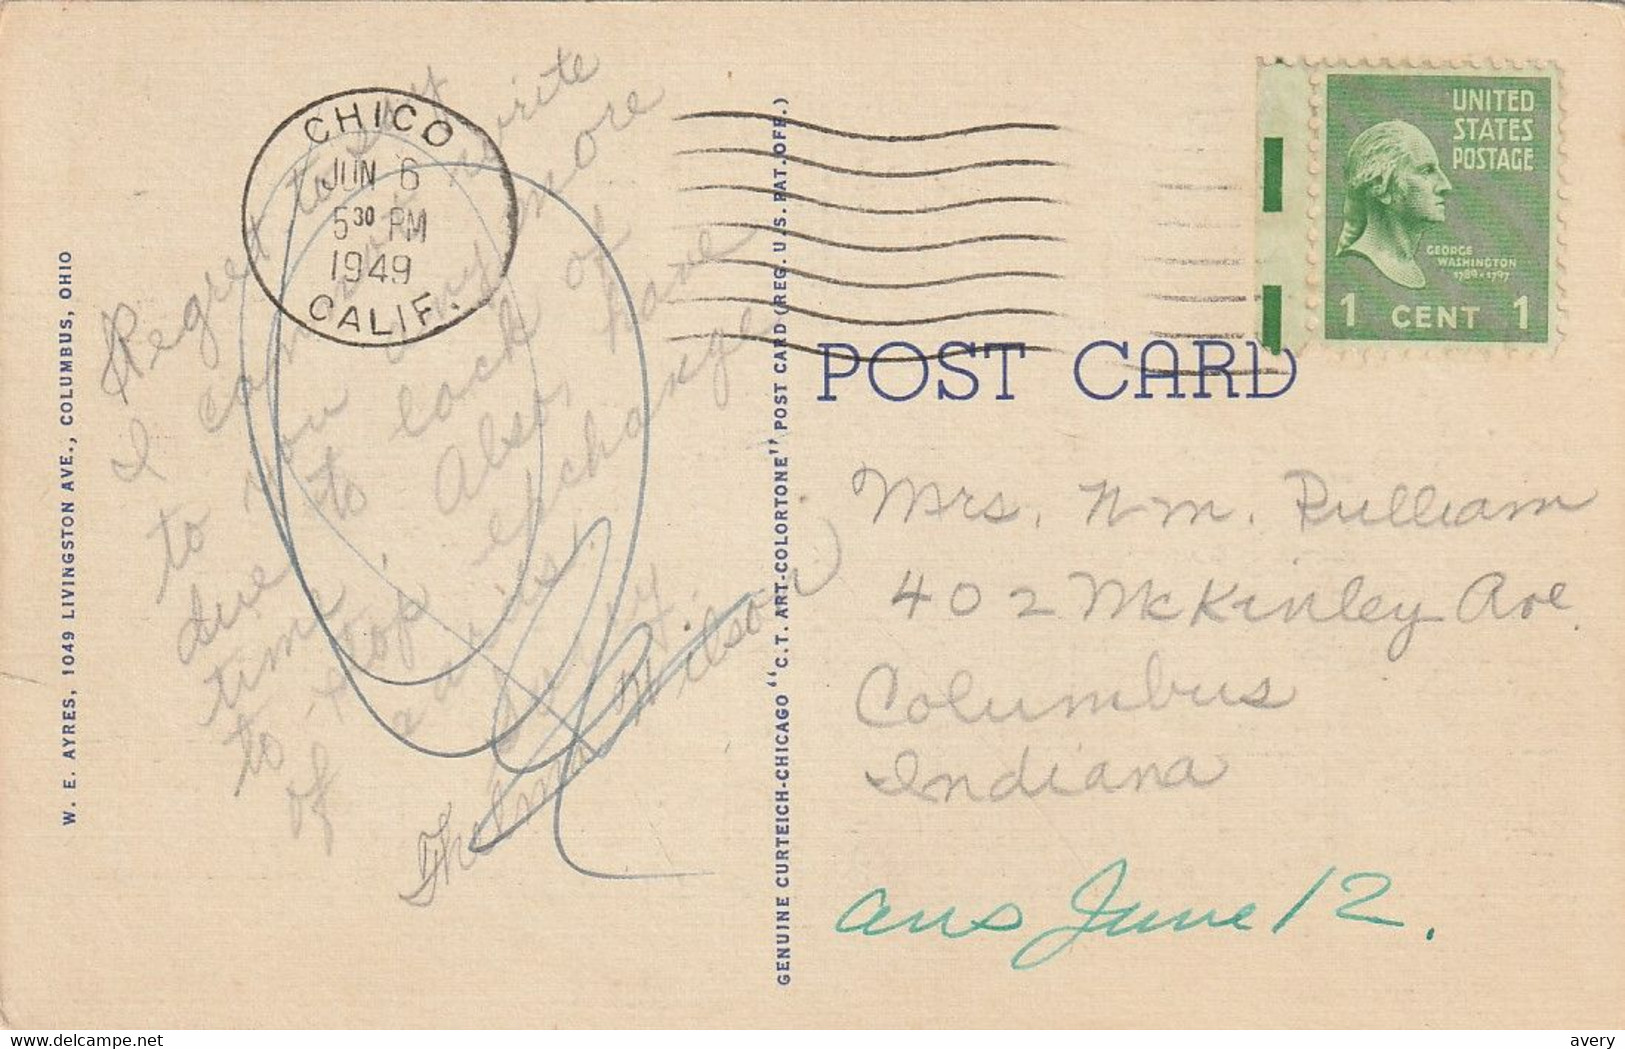 CHICO
JUN 6
5 30 PM
1949
CALIF.
Regret to say
I can not write
to you any more
due to lack of
time. Also, have
to stop exchange
of
Thelma Wilson
W. E. AYRES, 1049 LIVINGSTON AVE., COLUMBUS, OHIO
GENUINE CURTEICH-CHICAGO "C.T. ART-COLORTONE" POST CARD (REG. U.S. PAT. OFF.)
UNITED
STATES
POSTAGE
GEORGE
WASHINGTON
1789-1797
1 CENT 1
POST CARD
Mrs. Wm. Pulliam
402 McKinley Ave
Columbus
Indiana
ans June 12.
Delcampe.net
avery